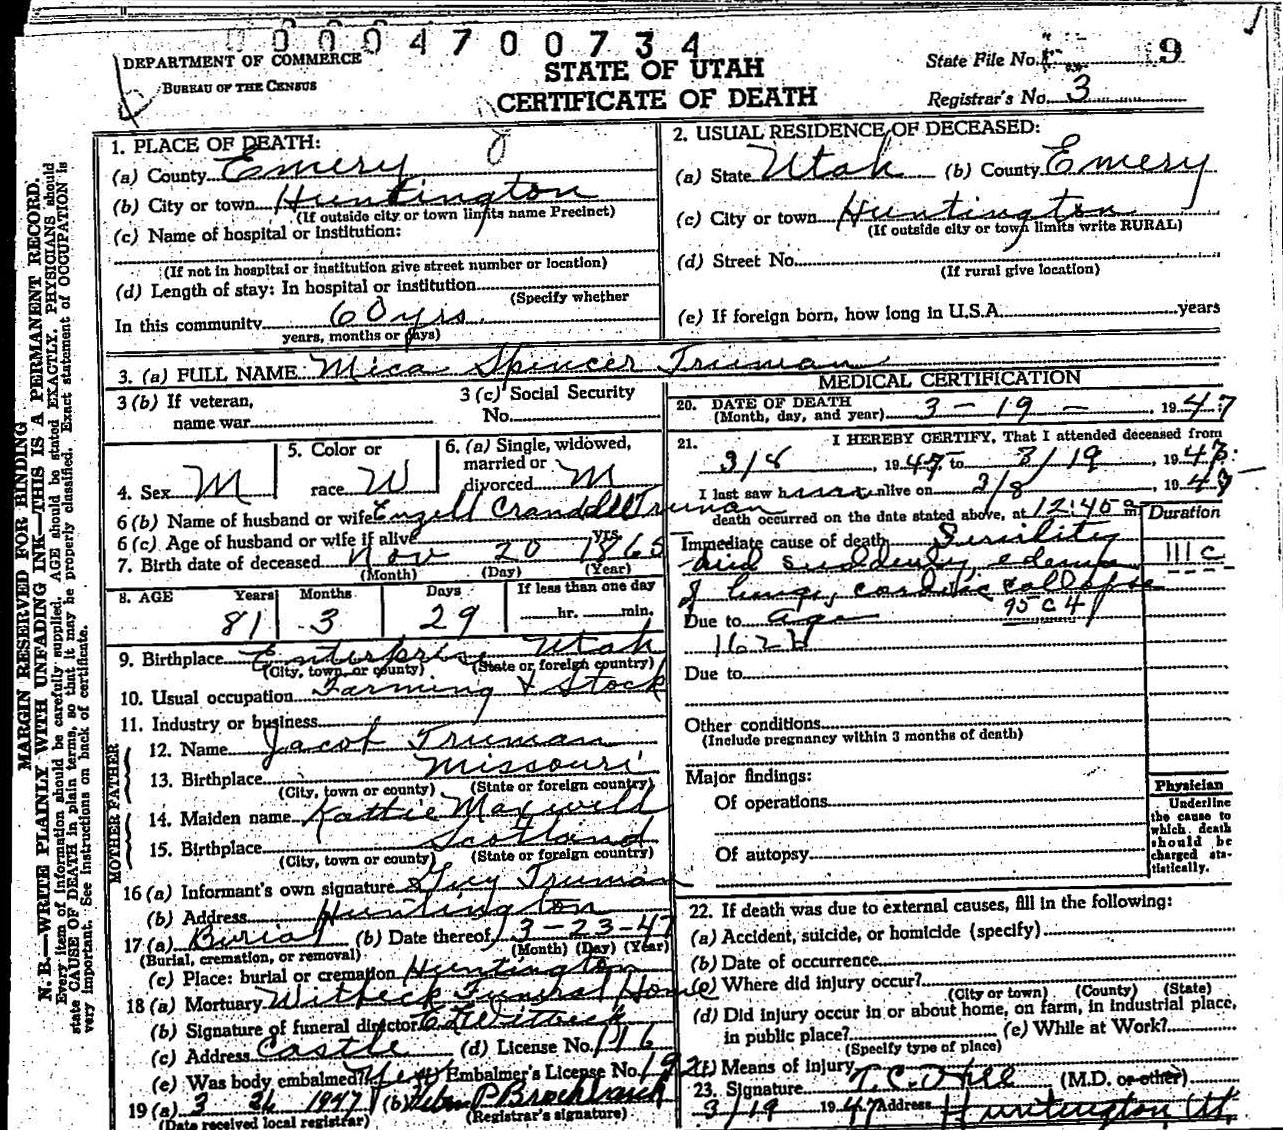 00004700734
DEPARTMENT OF COMMERCE
BUREAU OF THE CENSUS
STATE OF UTAH
CERTIFICATE OF DEATH
State File No. 9
Registrar's No. 3
MARGIN RESERVED FOR BINDING
N. B.—WRITE PLAINLY WITH UNFADING INK—THIS IS A PERMANENT RECORD.
Every item of information should be carefully supplied. AGE should be stated EXACTLY. PHYSICIANS should
state CAUSE OF DEATH in plain terms, so that it may be properly classified. Exact statement of OCCUPATION is
very important. See instructions on back of certificate.
1. PLACE OF DEATH:
(a) County Emery
(b) City or town Huntington
(If outside city or town limits name Precinct)
(c) Name of hospital or institution:
(If not in hospital or institution give street number or location)
(d) Length of stay: In hospital or institution
(Specify whether
In this community 60 yrs.
years, months or days)
2. USUAL RESIDENCE OF DECEASED:
(a) State Utah (b) County Emery
(c) City or town Huntington
(If outside city or town limits write RURAL)
(d) Street No.
(If rural give location)
(e) If foreign born, how long in U.S.A. years
3. (a) FULL NAME Mica Spencer Truman
3 (b) If veteran,
name war
3 (c) Social Security
No.
4. Sex M
5. Color or
race W
6. (a) Single, widowed,
married or
divorced M
6 (b) Name of husband or wife Crandell Truman
6 (c) Age of husband or wife if alive yrs.
7. Birth date of deceased Nov 20 1865
(Month) (Day) (Year)
8. AGE Years Months Days If less than one day
81 3 29 hr. min.
9. Birthplace Enterprise Utah
(City, town or county) (State or foreign country)
10. Usual occupation Farming & Stock
11. Industry or business
FATHER
12. Name Jacob Truman
13. Birthplace Missouri
(City, town or county) (State or foreign country)
MOTHER
14. Maiden name Kattie Maxwell
15. Birthplace Scotland
(City, town or county) (State or foreign country)
16 (a) Informant's own signature Guy Truman
(b) Address Huntington
17 (a) Burial (b) Date thereof 3-23-47
(Burial, cremation, or removal) (Month) (Day) (Year)
(c) Place: burial or cremation Huntington
18 (a) Mortuary Witbeck Funeral Home
(b) Signature of funeral director Witbeck
(c) Address Castle (d) License No. 116
(e) Was body embalmed? Yes Embalmer's License No. 192
19 (a) 3 26 1947 (b)
(Date received local registrar) (Registrar's signature)
MEDICAL CERTIFICATION
20. DATE OF DEATH
(Month, day, and year) 3-19- 1947
21. I HEREBY CERTIFY, That I attended deceased from
3/8, 1947 to 3/19, 1947
I last saw alive on 3/8 1947
death occurred on the date stated above, at 12:40 a m
Duration
Immediate cause of death Senility
and suddenly edema
of lungs, cardiac collapse
111 c
95 c 4
Due to age
162 b
Due to
Other conditions
(Include pregnancy within 3 months of death)
Major findings:
Of operations
Of autopsy
Physician
Underline
the cause to
which death
should be
charged sta-
tistically.
22. If death was due to external causes, fill in the following:
(a) Accident, suicide, or homicide (specify)
(b) Date of occurrence
(c) Where did injury occur?
(City or town) (County) (State)
(d) Did injury occur in or about home, on farm, in industrial place,
in public place? (e) While at Work?
(Specify type of place)
(f) Means of injury
23. Signature (M.D. or other)
3/19 1947 Address Huntington Ut.